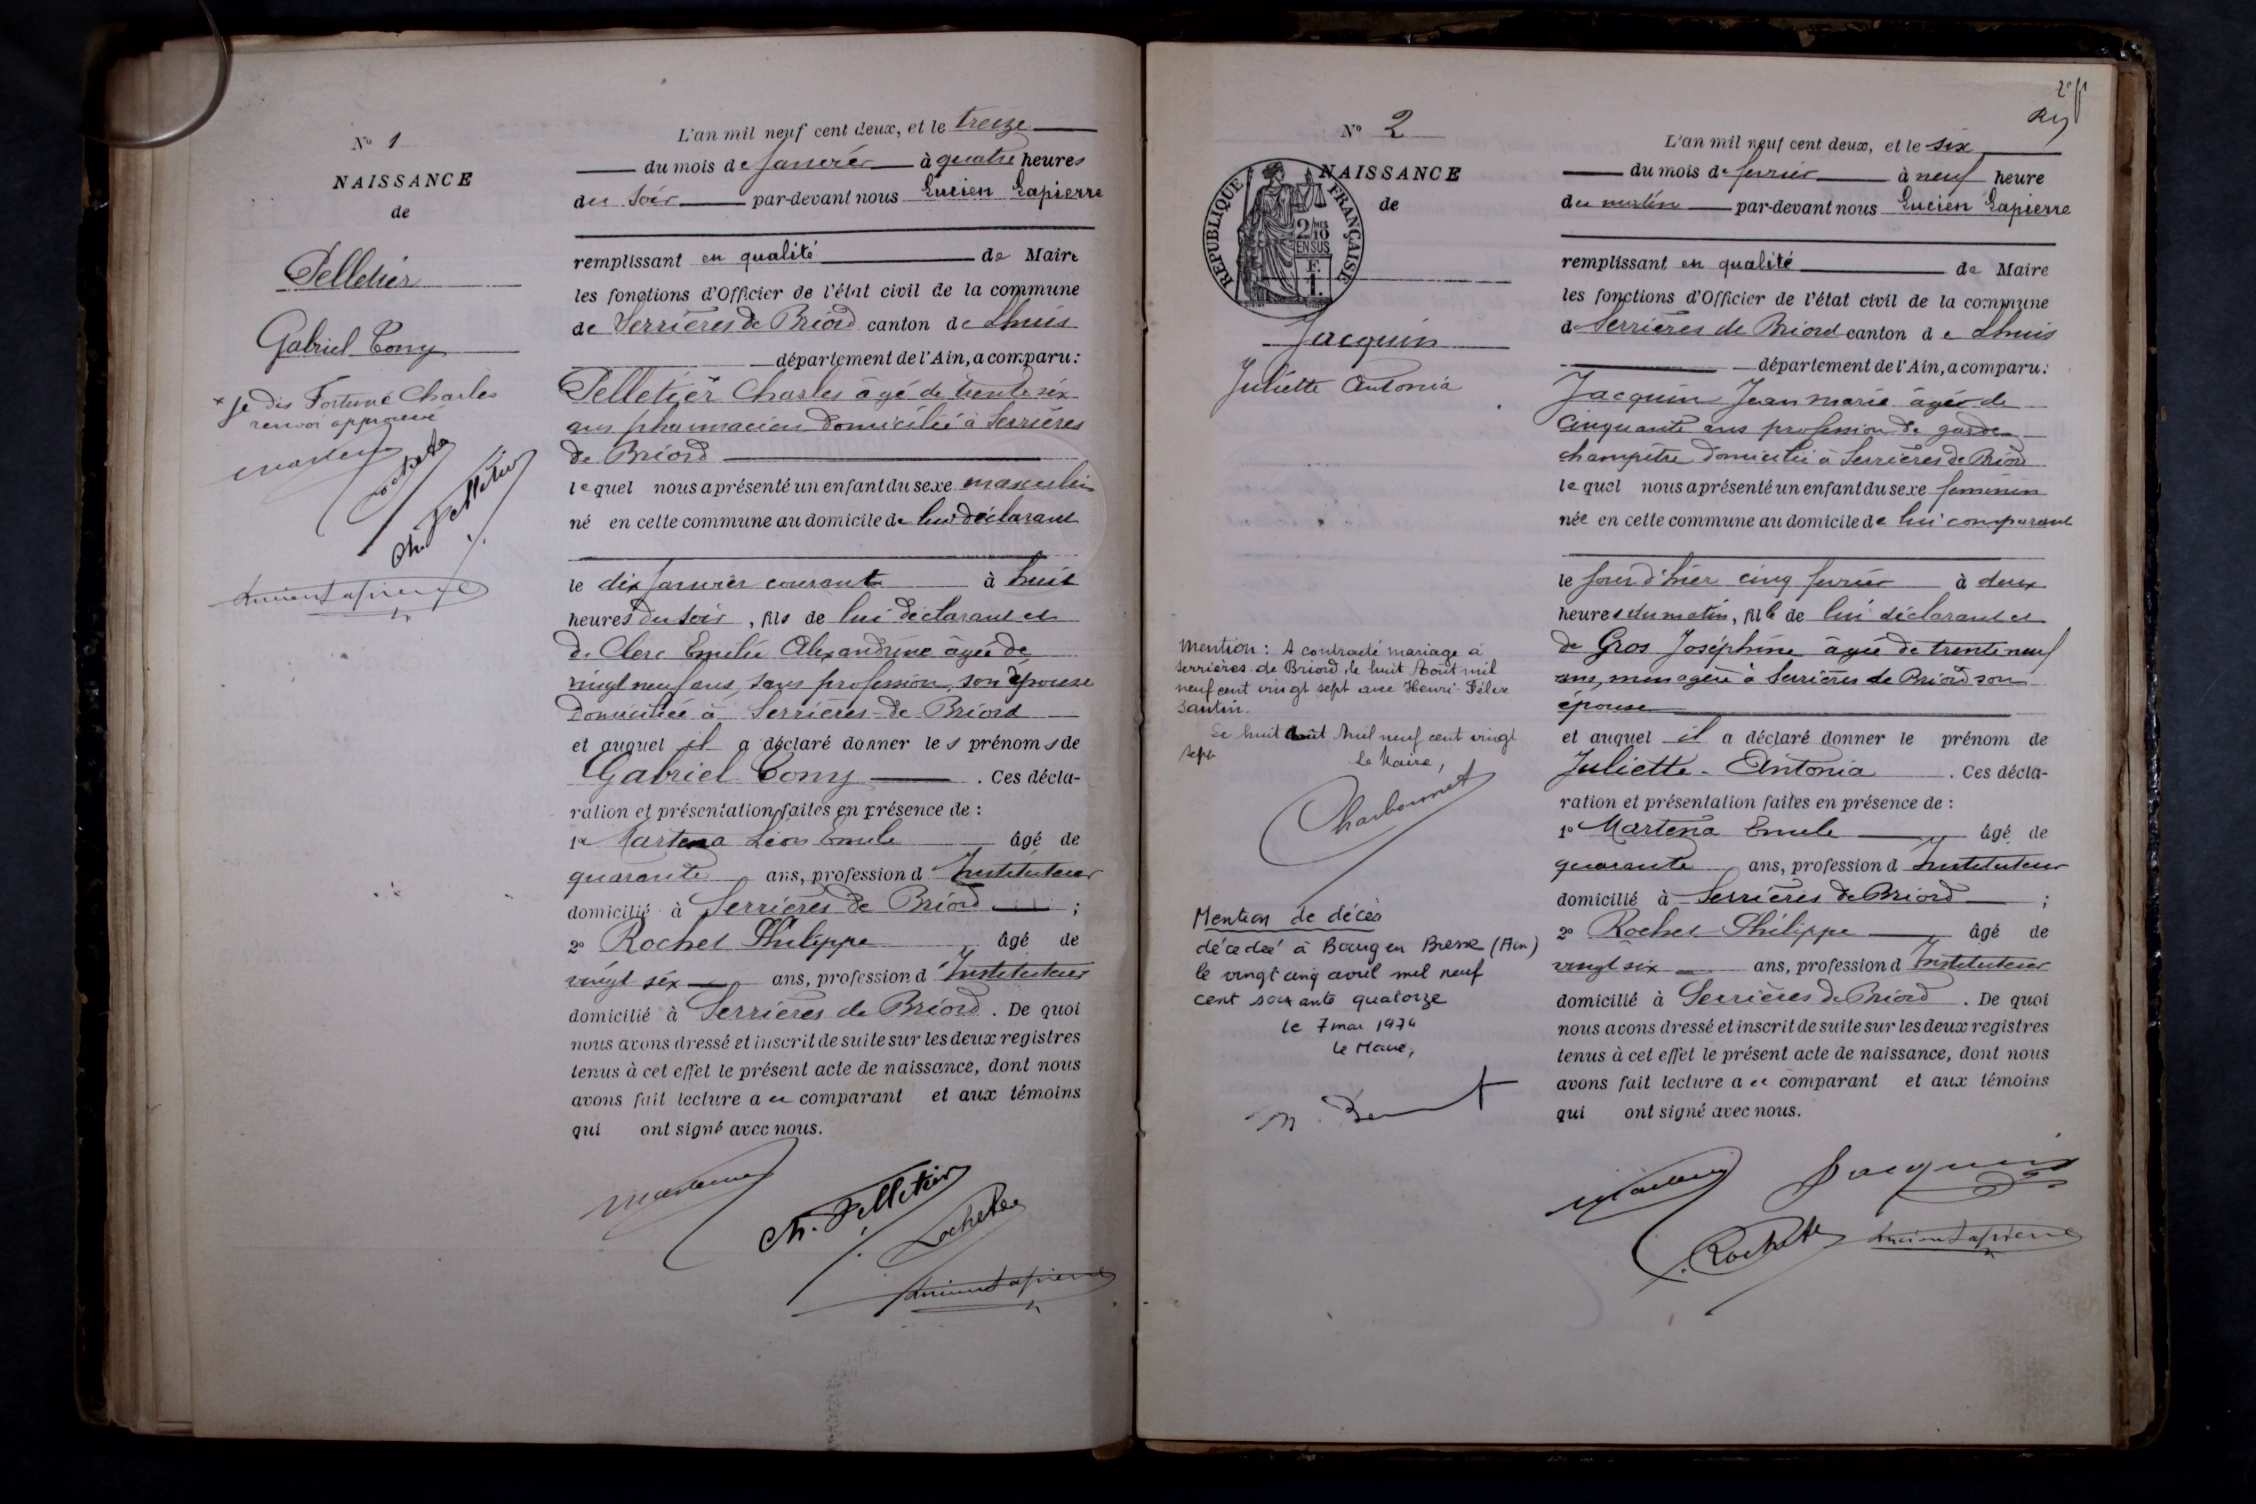 N° 1
NAISSANCE
de
Pelletier
Gabriel Tony
* Je dis Fortuné Charles
renvoi approuvé
Ch. Pelletier
Lucien Lapierre
L'an mil neuf cent deux, et le treize
du mois de Janvier à quatre heures
du soir par-devant nous Lucien Lapierre
remplissant en qualité de Maire
les fonctions d'Officier de l'état civil de la commune
de Serrières de Briord canton de Lhuis
département de l'Ain, a comparu :
Pelletier * Charles âgé de trente six
ans pharmacien domicilié à Serrières
de Briord
lequel nous a présenté un enfant du sexe masculin
né en cette commune au domicile de lui déclarant
le dix janvier courant à huit
heures du soir, fils de lui déclarant et
de Clerc Emélie Alexandrine âgée de
vingt neuf ans, sans profession, son épouse
domiciliée à Serrières-de-Briord
et auquel il a déclaré donner les prénoms de
Gabriel Tony . Ces décla-
ration et présentation faites en présence de :
1° Martena Léon Emile âgé de
quarante ans, profession d'Instituteur
domicilié à Serrières de Briord ;
2° Rochet Philippe âgé de
vingt six ans, profession d'Instituteur
domicilié à Serrières de Briord . De quoi
nous avons dressé et inscrit de suite sur les deux registres
tenus à cet effet le présent acte de naissance, dont nous
avons fait lecture a u comparant et aux témoins
qui ont signé avec nous.
Ch. Pelletier
Lucien Lapierre
N° 2
NAISSANCE
de
REPUBLIQUE FRANÇAISE
2/10
EN SUS
Jacquin
Juliette Antonia
Mention : A contracté mariage à
Serrières de Briord, le huit Août mil
neuf cent vingt sept avec Henri Félix
Santin.
Le huit Août Mil neuf cent vingt
sept
Le Maire,
Charbonnet
Mention de décès
décédée à Bourg en Bresse (Ain)
le vingt cinq avril mil neuf
cent soixante quatorze
le 7 mai 1974
Le Maire,
L'an mil neuf cent deux, et le six
du mois de février à neuf heure
du matin par-devant nous Lucien Lapierre
remplissant en qualité de Maire
les fonctions d'Officier de l'état civil de la commune
d Serrières de Briord canton de Lhuis
département de l'Ain, a comparu :
Jacquin Jean marie âgé de
Cinquante ans profession de garde
champêtre domicilié à Serrières de Briord
lequel nous a présenté un enfant du sexe féminin
née en cette commune au domicile de lui comparant
le jour d'hier cinq février à deux
heures du matin, fille de lui déclarant et
de Gros Joséphine âgée de trente neuf
ans, ménagère à Serrières de Briord son
épouse
et auquel il a déclaré donner le prénom de
Juliette - Antonia . Ces décla-
ration et présentation faites en présence de :
1° Martena Emile âgé de
quarante ans, profession d Instituteur
domicilié à Serrières de Briord ;
2° Rochet Philippe âgé de
vingt six ans, profession d Instituteur
domicilié à Serrières de Briord . De quoi
nous avons dressé et inscrit de suite sur les deux registres
tenus à cet effet le présent acte de naissance, dont nous
avons fait lecture a u comparant et aux témoins
qui ont signé avec nous.
Jacquin
Lucien Lapierre